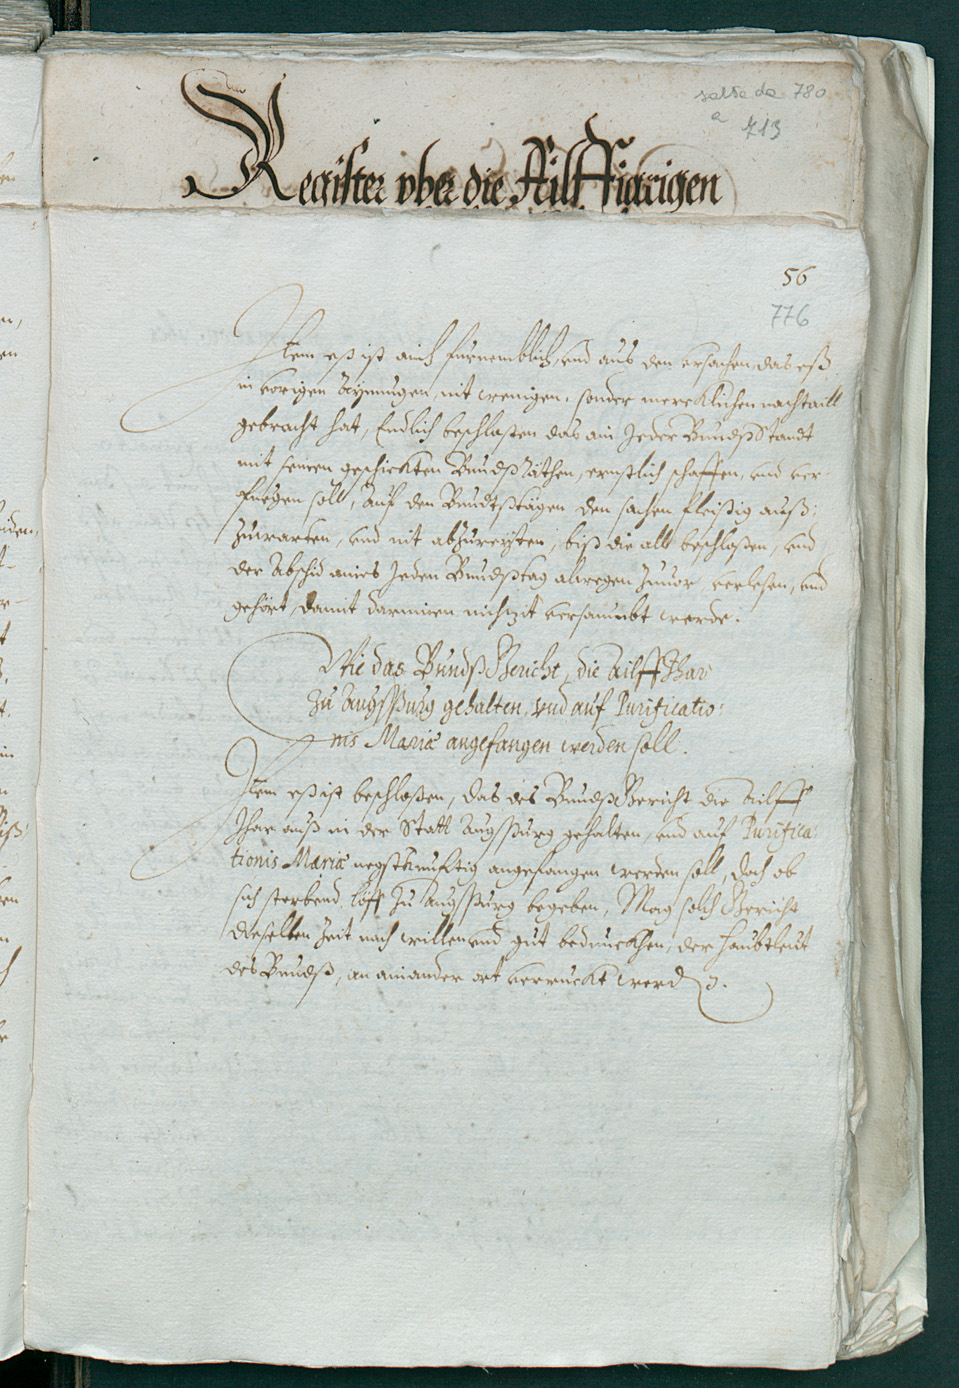 salta da 780
a 713
Register vber die Ailff Jarigen
56
776
Item eß ist auch furnemblich, vnd aus den vrsachen, das eß
in vorigen Aynungen, nit wenigen, sonder mercklichen nachtaill
gebracht hat, Endlich beschlossen das ain Jeder BundßStandt
mit seinen geschickten BundßRäthen, ernstlich schaffen, vnd ver-
fuegen soll, auf den Bundtßtägen den sachen fleissig auß:
zuwarten, vnd nit abzureysten, biß die all beschlossen, vnd
der Abschid aines Jeden Bundßtag alwegen zuuor, verlesen, vnd
gehört, damit darinnen nichtzit versaumbt werde.
Wie das BundßGericht, die ailff Jhar
zu Augspurg gehalten, vnd auf Purificatio:
nis Mariæ angefangen werden soll.
Item eß ist beschlossen, das des BundßGericht die ailff
Jhar auß in der Statt Augspurg gehalten, vnd auf Purifica:
tionis Mariæ negstkunftig angefangen werden soll, doch ob
sich sterbend löff zu Augspurg begeben, Mag solch Gericht
dieselben Zeit nach willen vnd gut bedunckhen, der Haubtleut
des Bundß, an ain ander ort verruckt werden.